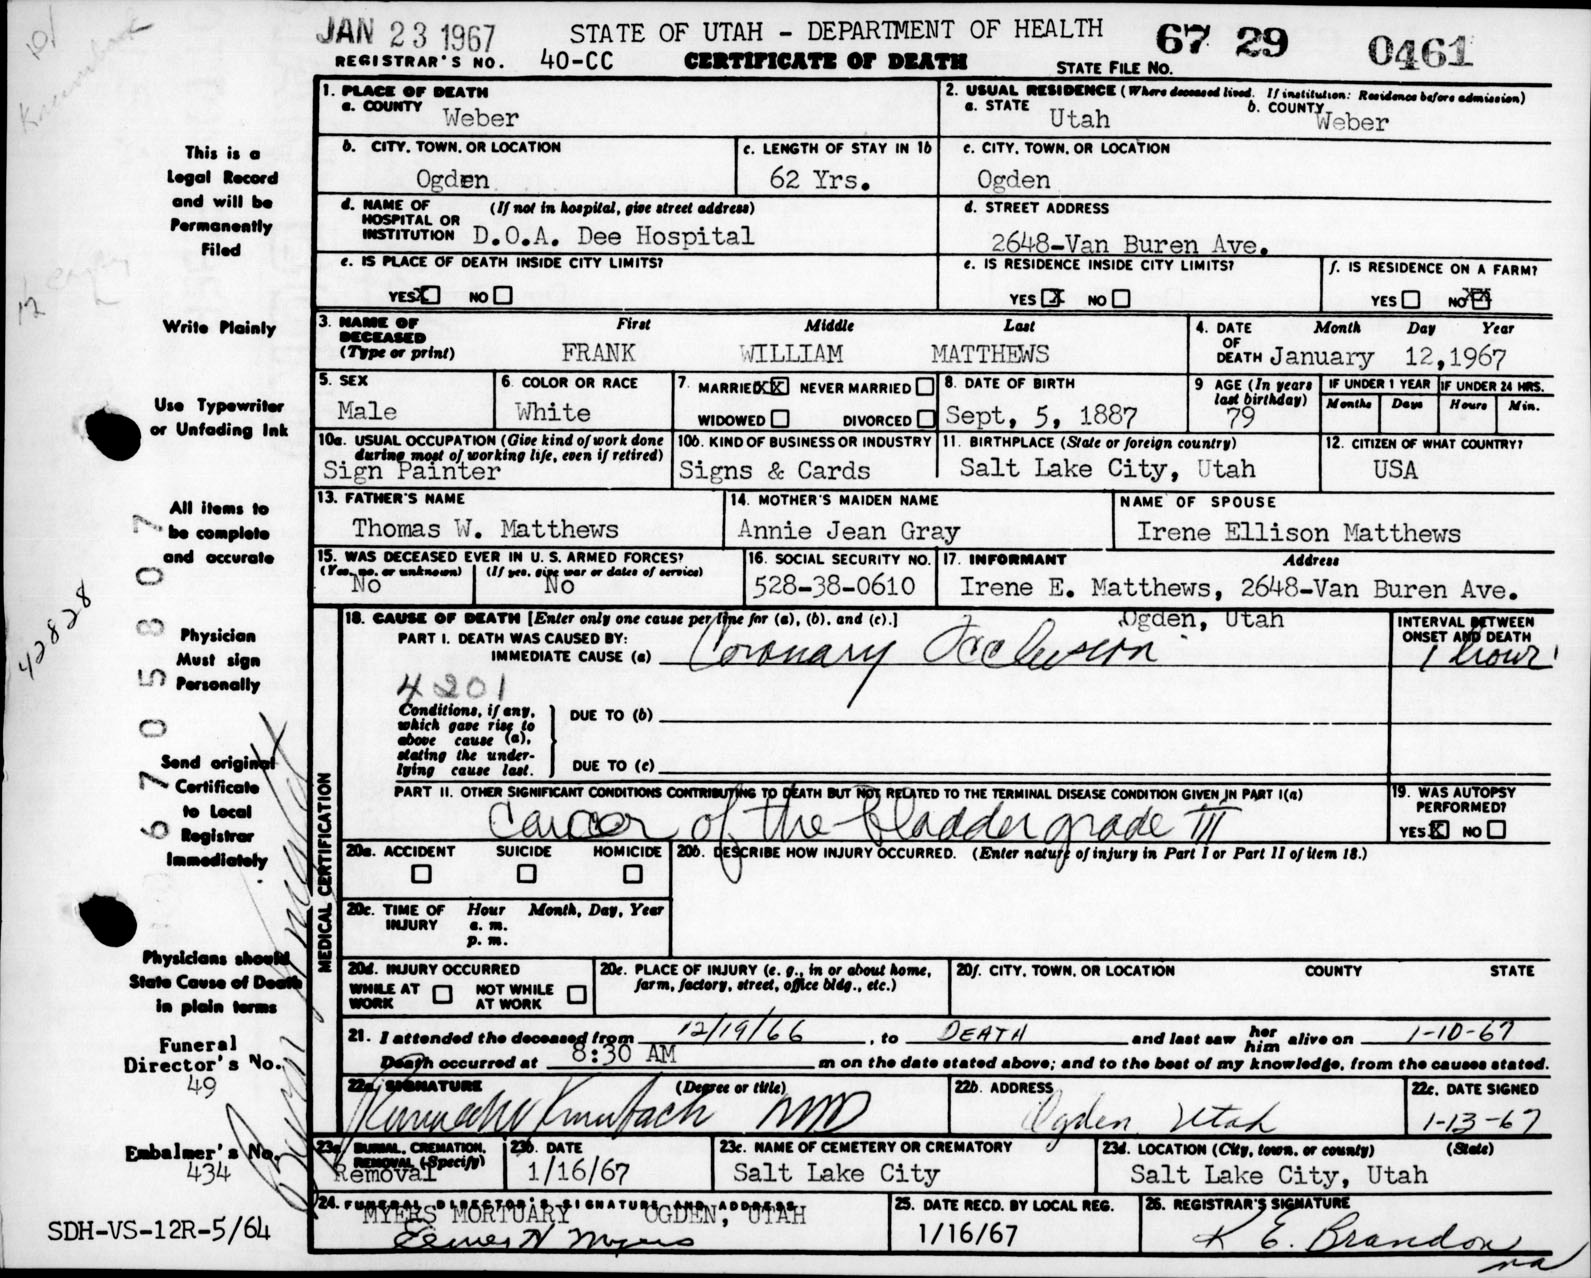 JAN 23 1967 STATE OF UTAH - DEPARTMENT OF HEALTH 67 29 0461
REGISTRAR'S NO. 40-CC CERTIFICATE OF DEATH STATE FILE NO.
1. PLACE OF DEATH
a. COUNTY Weber
2. USUAL RESIDENCE (Where deceased lived. If institution: Residence before admission)
a. STATE Utah b. COUNTY Weber
b. CITY, TOWN, OR LOCATION Ogden
c. LENGTH OF STAY IN 1b 62 Yrs.
c. CITY, TOWN, OR LOCATION Ogden
d. NAME OF HOSPITAL OR INSTITUTION (If not in hospital, give street address) D.O.A. Dee Hospital
d. STREET ADDRESS 2648-Van Buren Ave.
e. IS PLACE OF DEATH INSIDE CITY LIMITS?
YES X NO
e. IS RESIDENCE INSIDE CITY LIMITS?
YES X NO
f. IS RESIDENCE ON A FARM?
YES NO XX
3. NAME OF DECEASED (Type or print) First Middle Last
FRANK WILLIAM MATTHEWS
4. DATE OF DEATH Month Day Year
January 12, 1967
5. SEX Male
6. COLOR OR RACE White
7. MARRIED XX NEVER MARRIED
WIDOWED DIVORCED
8. DATE OF BIRTH Sept, 5, 1887
9 AGE (In years last birthday) 79
IF UNDER 1 YEAR Months Days
IF UNDER 24 HRS. Hours Min.
10a. USUAL OCCUPATION (Give kind of work done during most of working life, even if retired)
Sign Painter
10b. KIND OF BUSINESS OR INDUSTRY
Signs & Cards
11. BIRTHPLACE (State or foreign country)
Salt Lake City, Utah
12. CITIZEN OF WHAT COUNTRY?
USA
13. FATHER'S NAME
Thomas W. Matthews
14. MOTHER'S MAIDEN NAME
Annie Jean Gray
NAME OF SPOUSE
Irene Ellison Matthews
15. WAS DECEASED EVER IN U. S. ARMED FORCES?
(Yes, no, or unknown) No (If yes, give war or dates of service) No
16. SOCIAL SECURITY NO.
528-38-0610
17. INFORMANT Address
Irene E. Matthews, 2648-Van Buren Ave.
Ogden, Utah
18. CAUSE OF DEATH [Enter only one cause per line for (a), (b), and (c).]
PART I. DEATH WAS CAUSED BY:
IMMEDIATE CAUSE (a) Coronary Occlusion
INTERVAL BETWEEN ONSET AND DEATH
1 hour
4201
Conditions, if any, which gave rise to above cause (a), stating the underlying cause last.
DUE TO (b)
DUE TO (c)
PART II. OTHER SIGNIFICANT CONDITIONS CONTRIBUTING TO DEATH BUT NOT RELATED TO THE TERMINAL DISEASE CONDITION GIVEN IN PART I(a)
Cancer of the bladder grade III
19. WAS AUTOPSY PERFORMED?
YES X NO
20a. ACCIDENT SUICIDE HOMICIDE
20b. DESCRIBE HOW INJURY OCCURRED. (Enter nature of injury in Part I or Part II of item 18.)
20c. TIME OF INJURY Hour Month, Day, Year
a. m.
p. m.
20d. INJURY OCCURRED
WHILE AT WORK NOT WHILE AT WORK
20e. PLACE OF INJURY (e. g., in or about home, farm, factory, street, office bldg., etc.)
20f. CITY, TOWN, OR LOCATION COUNTY STATE
21. I attended the deceased from 12/19/66, to DEATH and last saw her him alive on 1-10-67
Death occurred at 8:30 AM m on the date stated above; and to the best of my knowledge, from the causes stated.
22a. SIGNATURE (Degree or title)
MD
22b. ADDRESS
Ogden Utah
22c. DATE SIGNED
1-13-67
23a BURIAL, CREMATION, REMOVAL (Specify)
Removal
23b. DATE
1/16/67
23c. NAME OF CEMETERY OR CREMATORY
Salt Lake City
23d. LOCATION (City, town, or county) (State)
Salt Lake City, Utah
24. FUNERAL DIRECTOR'S SIGNATURE AND ADDRESS
MYERS MORTUARY OGDEN, UTAH
25. DATE RECD. BY LOCAL REG.
1/16/67
26. REGISTRAR'S SIGNATURE
K E. Brandon
na
MEDICAL CERTIFICATION
This is a
Legal Record
and will be
Permanently
Filed
Write Plainly
Use Typewriter
or Unfading Ink
All items to
be complete
and accurate
Physician
Must sign
Personally
Send original
Certificate
to Local
Registrar
Immediately
Physicians should
State Cause of Death
in plain terms
Funeral
Director's No.
49
Embalmer's No.
434
SDH-VS-12R-5/64
67 05807
42828
12